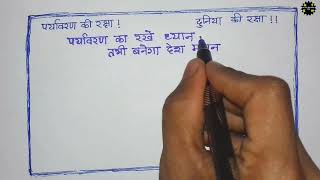 पर्यावरण की रक्षा! दुनिया की रक्षा!!
पर्यावरण का रखें ध्यान
तभी बनेगा देश